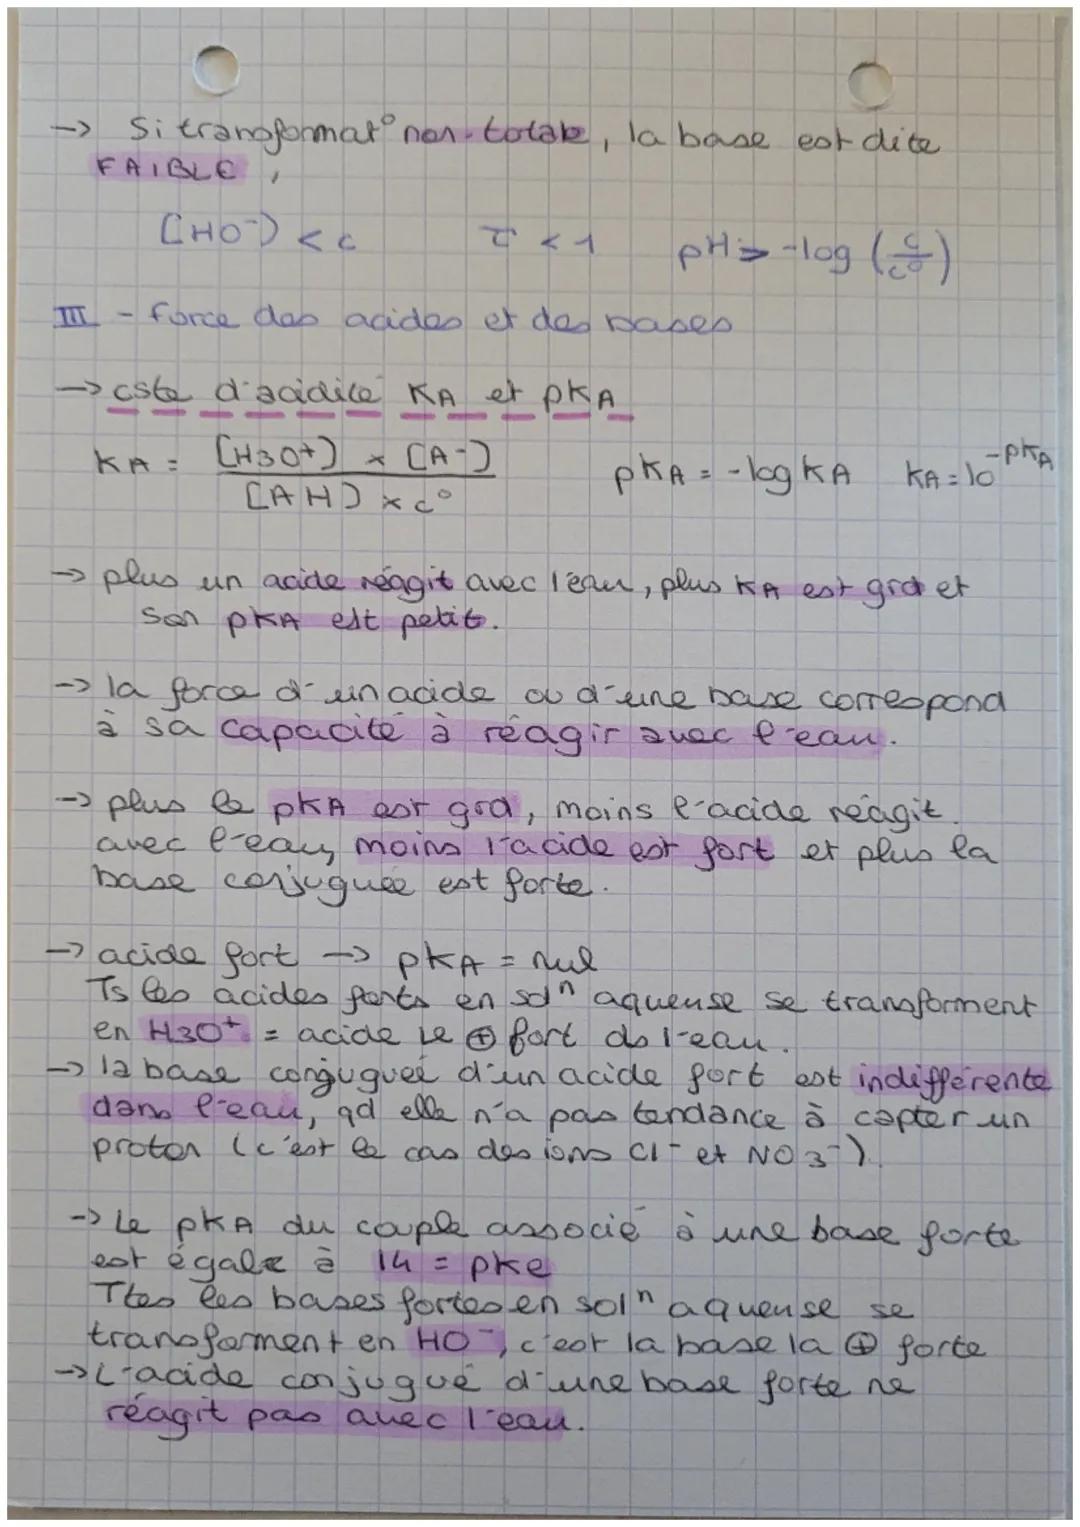 -> Si transformat° non-totale, la base est dite
FAIBLE,
[HO⁻] < c τ < 1 pH > -log (c/c°)
III - force des acides et des bases
-> cste d'acidité KA et pKA
KA = [H3O+] × [A-] / [AH] × c° pKA = -log KA KA = 10^-pKA
-> plus un acide réagit avec l'eau, plus KA est grd et
son pKA est petit.
-> la force d'un acide ou d'une base correspond
à sa capacité à réagir avec l'eau.
-> plus le pKA est grd, moins l'acide réagit
avec l'eau, moins l'acide est fort et plus la
base conjuguée est forte.
-> acide fort -> pKA = nul
Ts les acides forts en sol^n aqueuse se transforment
en H3O+ = acide le ⊕ fort ds l'eau.
-> la base conjuguée d'un acide fort est indifférente
dans l'eau, qd elle n'a pas tendance à capter un
proton (c'est le cas des ions Cl- et NO3-).
-> Le pKA du couple associé à une base forte
est égale à 14 = pke
Ttes les bases fortes en sol^n aqueuse se
transforment en HO⁻, c'est la base la ⊕ forte
-> L'acide conjugué d'une base forte ne
réagit pas avec l'eau.